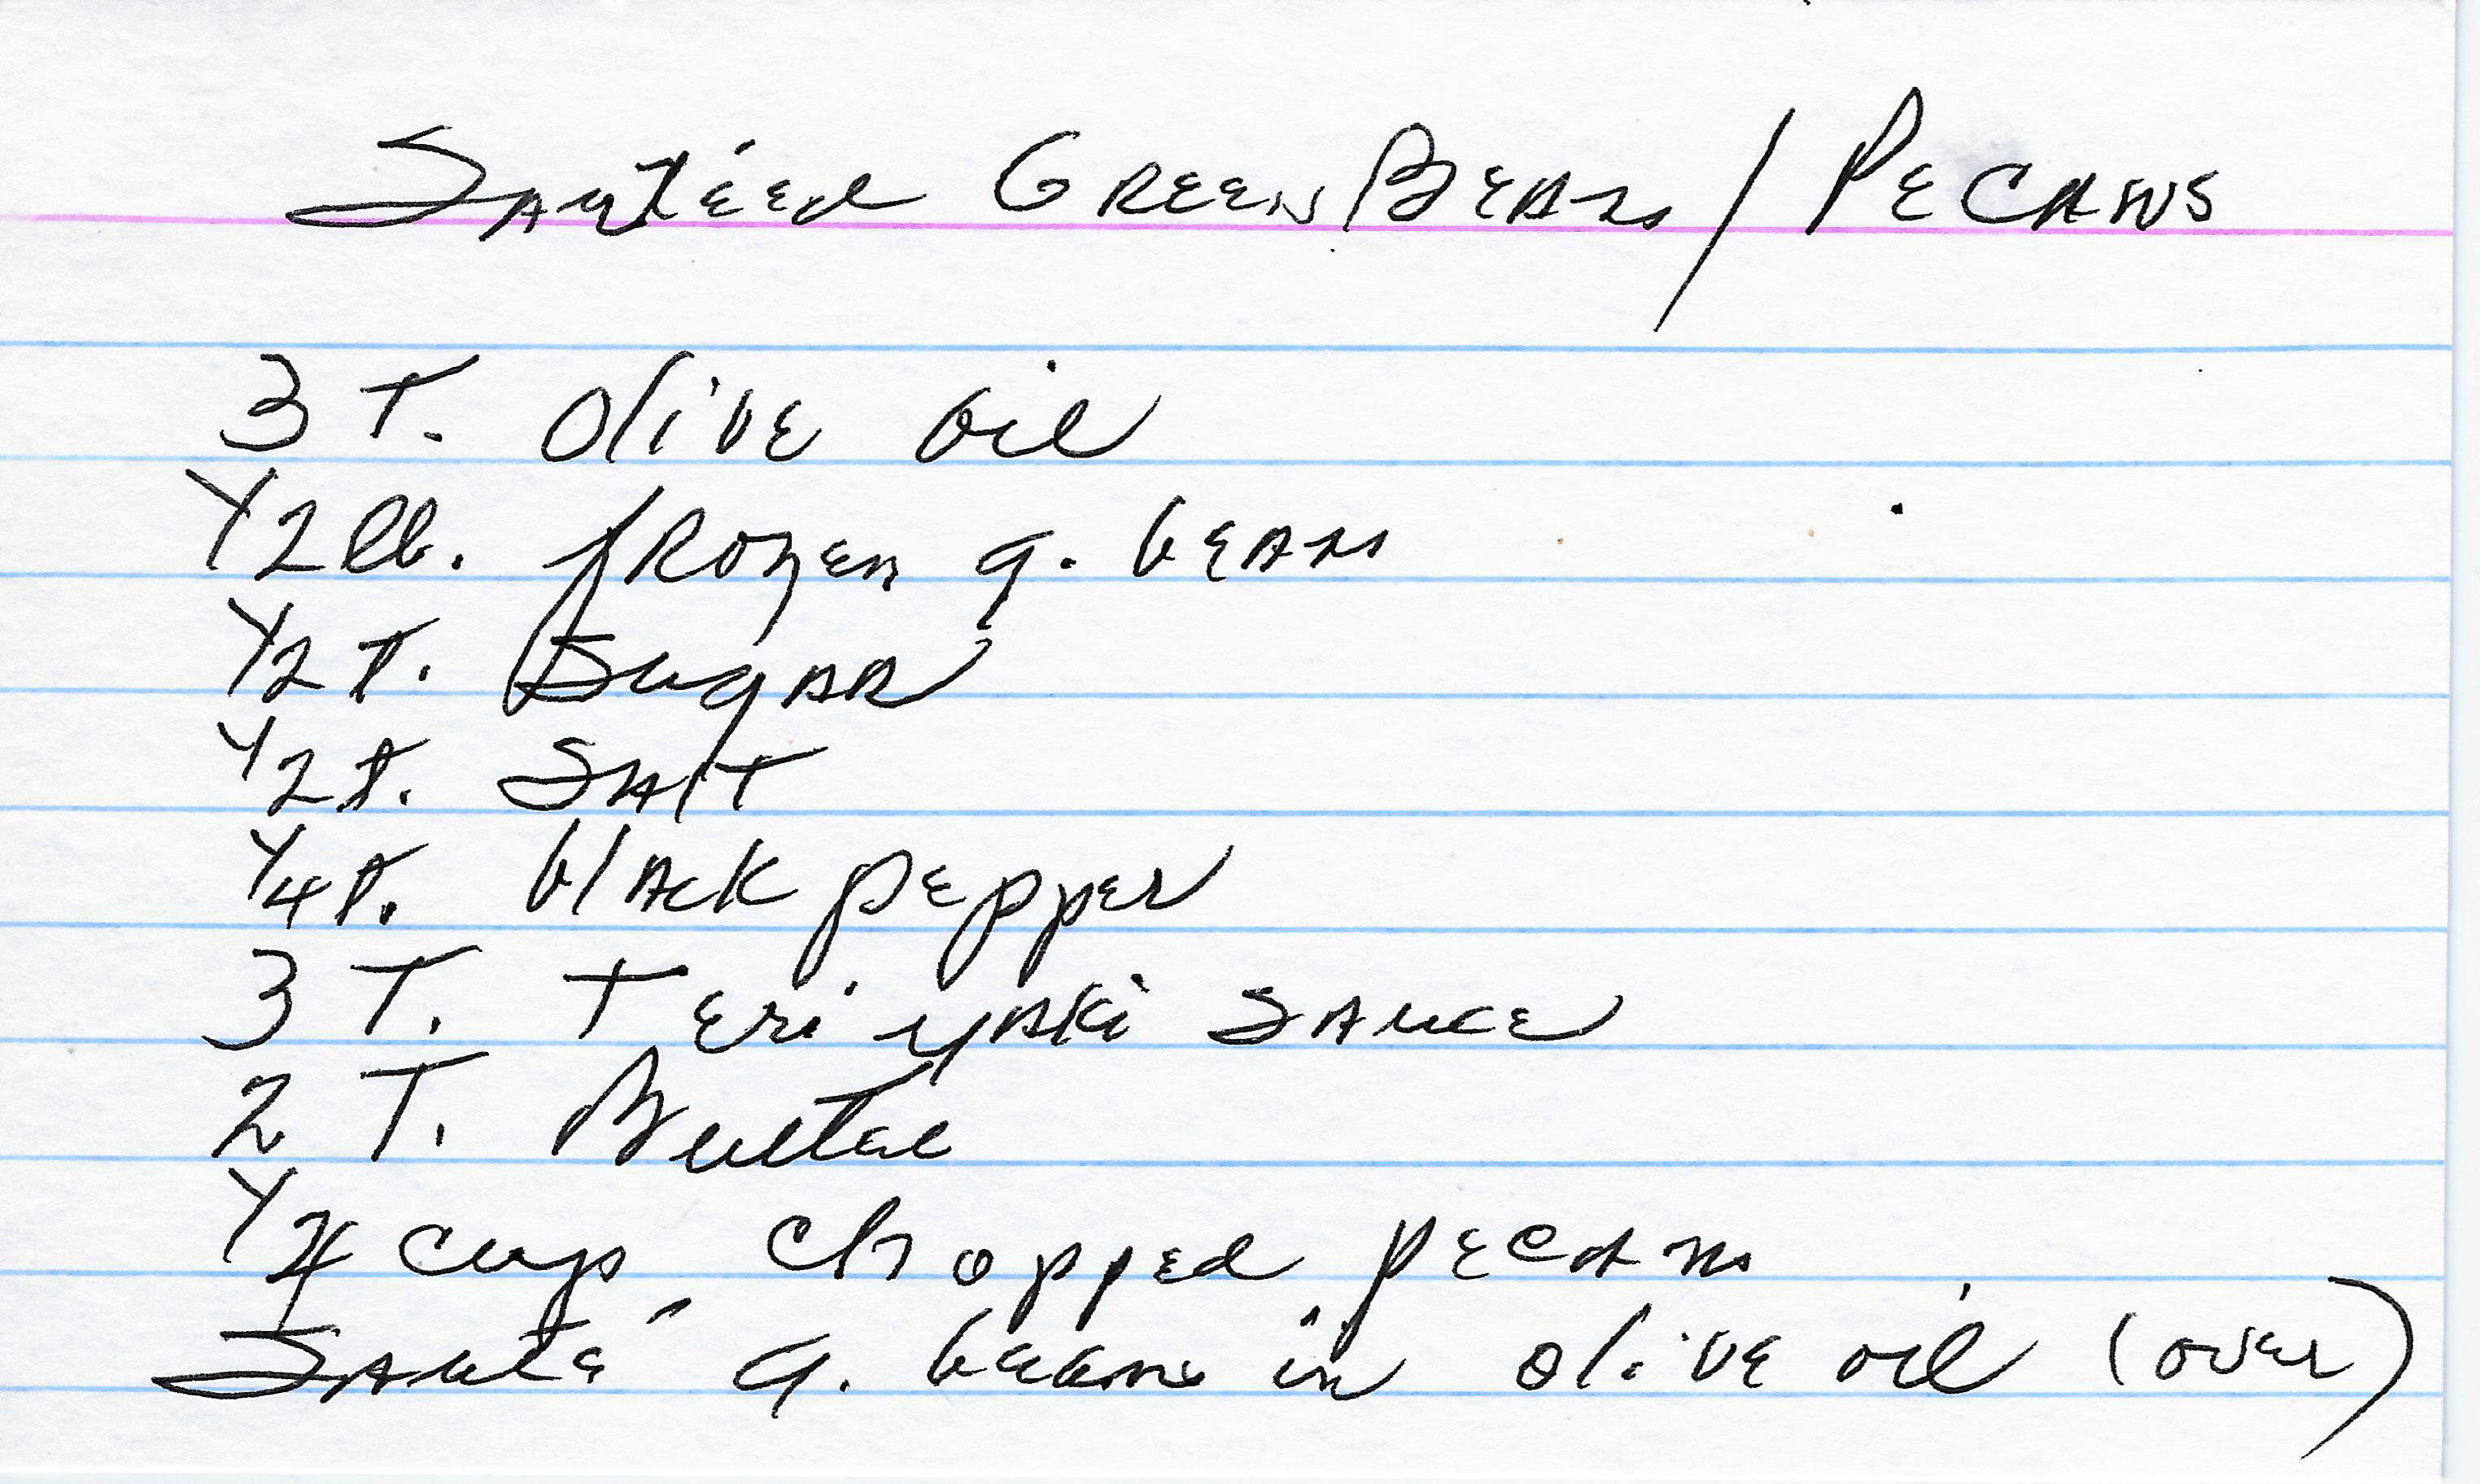 Sautéed Green Beans / Pecans
3 T. Olive oil
1/2 lb. frozen g. beans
1/2 t. Sugar
1/2 t. Salt
1/4 t. black pepper
3 T. Teriyaki sauce
2 T. Butter
1/4 cup chopped pecans
Sauté g. beans in olive oil (over)